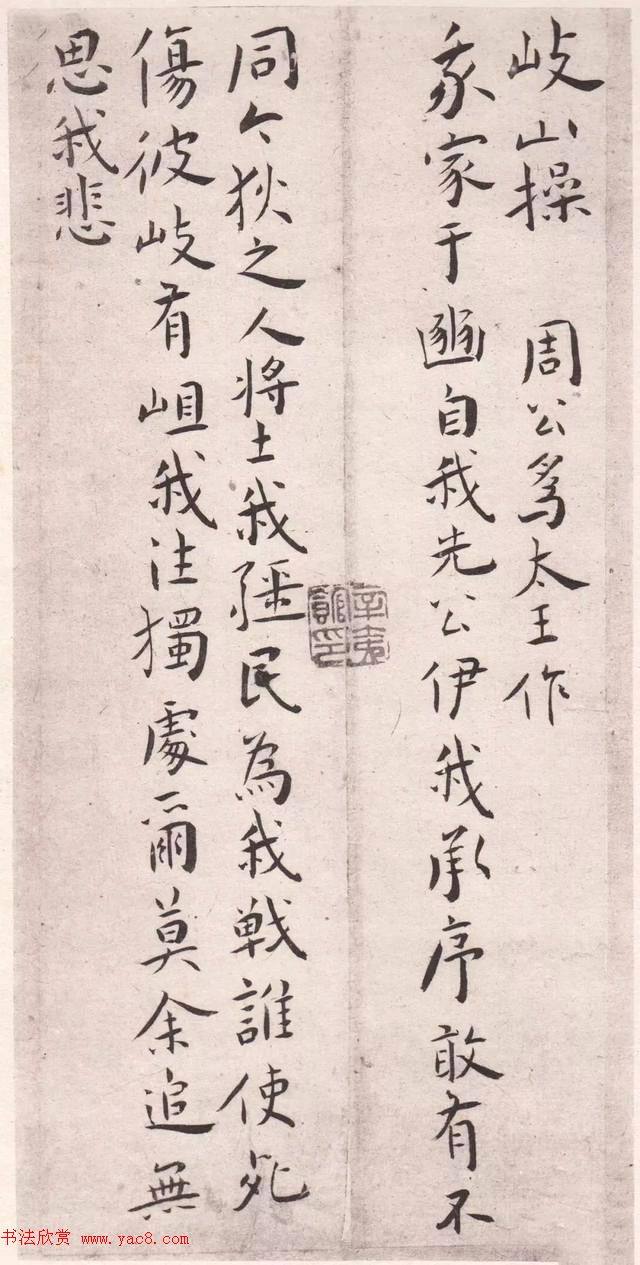 岐山操　周公為太王作
我家于豳自我先公伊我承序敢有不
同今狄之人將土我疆民為我戰誰使死
傷彼岐有岨我往獨處爾莫余追無
思我悲
书法欣赏 www.yac8.com